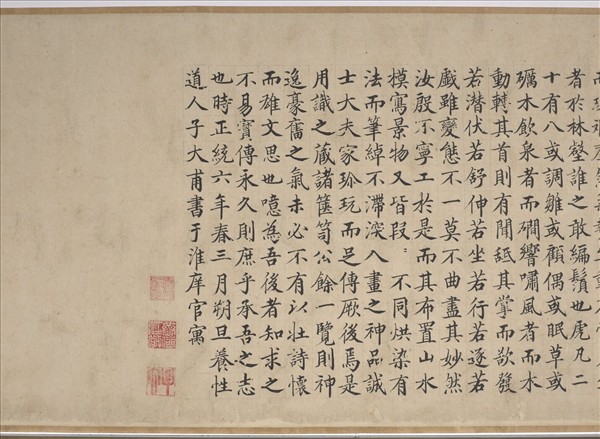 者於林壑誰之敢編鬚也虎凡二
十有八或調雛或顧偶或眠草或
礪木飲泉者而磵響嘯風者而木
動轉其首則有聞舐其掌而欲發
若潛伏若舒伸若坐若行若逐若
戲雖變態不一莫不曲盡其妙然
汝殷不寧工於是而其布置山水
摸寫景物又皆段〻不同烘染有
法而筆綽不滯深入畫之神品誠
士大夫家珎玩而足傳厥後焉是
用識之藏諸篋笥公餘一覽則神
逸豪奮之氣未必不有以壯詩懷
而雄文思也噫為吾後者知求之
不易寶傳永久則庶乎承吾之志
也時正統六年春三月朔旦養性
道人子大甫書于淮庠官寓